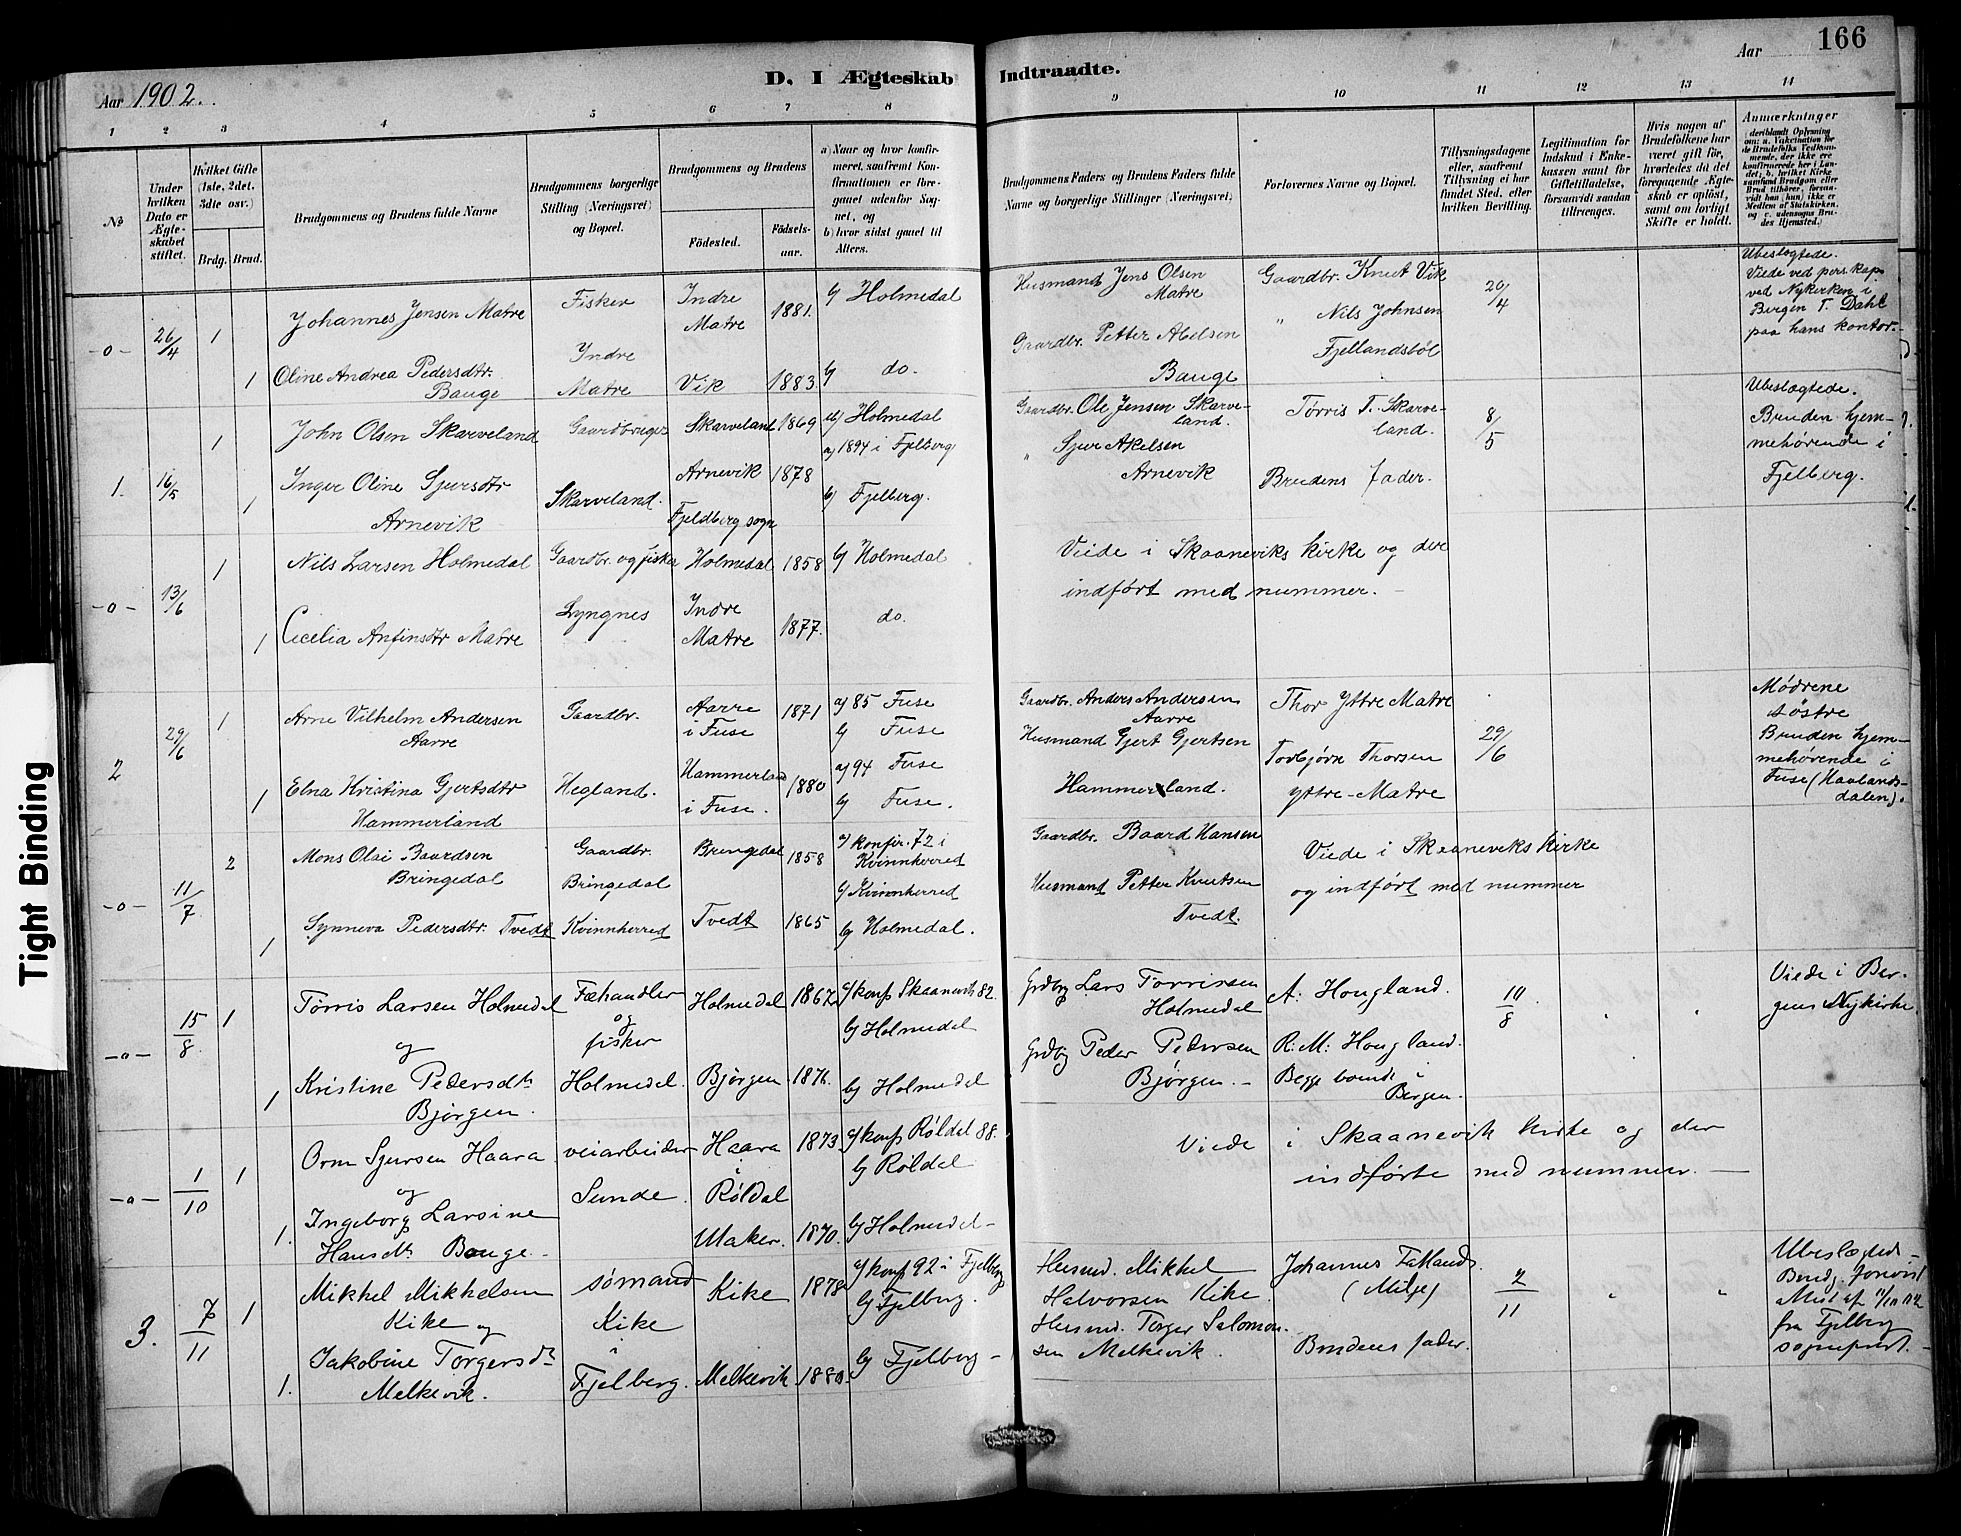 166
Aar 1902.
D. I Ægteskab Indtraadte.
Aar
1 2 3 4 5 6 7 8 9 10 11 12 13 14
No
Under hvilken Dato er Ægteskabet stiftet.
Hvilket Gifte (1ste, 2det, 3die osv.)
Brdg. Brud.
Brudgommens og Brudens fulde Navne
Brudgommens borgerlige Stilling (Næringsvei) og Bopæl.
Brudgommens og Brudens
Födested.
Födsels-aar.
a) Naar og hvor konfirmeret, saafremt Konfirmationen er foregaaet udenfor Sognet, og
b) hvor sidst gaaet til Alters.
Brudgommens Faders og Brudens Faders fulde Navne og borgerlige Stillinger (Næringsvei)
Forlovernes Navne og Bopæl.
Tillysningsdagene eller, saafremt Tillysning ei har fundet Sted, efter hvilken Bevilling.
Legitimation for Indskud i Enkekassen samt for Giftetilladelse, forsaavidt saadan tiltrænges.
Hvis nogen af Brudefolkene har været gift för, hvorledes da det foregaaende Ægteskab er oplöst, samt om lovligt Skifte er holdt.
Anmærkninger
(deriblandt Oplysning om: a. Vakcination for de Brudefolks Vedkommende, der ikke ere konfirmerede her i Landet; b. hvilket Kirkesamfund Brudgom eller Brud tilhører, forsaavidt han (hun) ikke er Medlem af Statskirken, og c. udensogns Brudes Hjemsted.)
-o- 26/4 1 Johannes Jensen Matre Fisker Indre Matre 1881. b) Holmedal Husmand Jens Olsen Matre Gaardbr. Knut Vik 20/4 Ubeslægtede.
Viede ved pers. kap. ved Nykirken i Bergen T. Dahl paa hans kontor.
1 Oline Andrea Pedersdtr. Bauge Yndre Matre Vik 1883. b) do. Gaardbr. Petter Abelsen Bauge " Nils Johnsen Fjellandsböl
1. 16/5 1 John Olsen Skarveland Gaardbruger Skarveland 1869 b) Holmedal Gaardbr. Ole Jensen Skarveland. Tørris T. Skarveland. 8/5 Ubeslægtede.
Bruden hjemmehørende i Fjelberg.
1 Inger Oline Sjursdtr Arnevik Skarveland. Arnevik Fjeldberg sogn 1878 a) 1894 i Fjelberg b) Fjelberg. " Sjur Akelsen Arnevik Brudens fader.
-o- 13/6 1 Nils Larsen Holmedal Gaardbr. og fisker Holmedal 1858 b) Holmedal Viede i Skaaneviks kirke og der indført med nummer. -
1 Cecelia Anfinsdtr Matre Lyngnes Indre Matre 1877. do.
2 29/6 1 Arne Vilhelm Andersen Aarre Gaardbr. Aarre i Fuse 1871 a) 85 Fuse b) Fuse Gaardbr. Anders Andersen Aarre Thor Yttre Matre 29/6 Mödrene söstre
Bruden hjemmehørende i Fuse (Havlandsdalen).
1 Elna Kristina Gjertsdtr Hammerland Hegland. Hammerland i Fuse. 1880 a) 94 Fuse b) Fuse. Husmand Gjert Gjertsen Hammerland. Torbjørn Thorsen Yttre-Matre
-o- 11/7 2 Mons Olai Baardsen Bringedal Gaardbr. Bringedal Bringedal 1858 a) konfir. 72 i Kvinnherred b) Kvinnherred Gaardbr. Baard Hansen Viede i Skaaneviks kirke og indført med nummer
1 Synneva Pedersdtr. Tvedt Kvinnherred Tvedt 1865 b) Holmedal. Husmand Petter Knutsen Tvedt.
-o- 15/8 1 Tørris Larsen Holmedal Fæhandler og fisker Holmedal 1867 a) konf Skaanevik 82. b) Holmedal Grdbr Lars Tørrissen Holmedal A: Hougland. 10/8 Viede i Bergens Nykirke.
og
1 Kristine Pedersdtr Bjørgen. Holmedal. Bjørgen. 1876. b) Holmedal Grdbr Peder Pedersen Bjørgen. - R: M: Hougland. Begge boende i Bergen.
-o- 1/10 1 Orm Sjursen Haara veiarbeider Sunde. Haara i Røldal 1873. a) konf Røldal 88. b) Røldal Viede i Skaanevik kirke og der indførte med nummer. -
og
1. Ingeborg Larsine Hansdtr Bauge - Utaker. 1870. b) Holmedal -
3. 7/11 1 Mikkel Mikkelsen Kike og sømand Kike i Fjelberg. Kike 1878 a) konf 92 i Fjelberg b) Fjelberg. Husmd. Mikkel Halvorsen Kike. Johannes Fatland. (Milje) 2/11 Ubeslægtede -
fra Fjelberg sognepræst. -
1. Jakobine Torgersdtr Melkevik. Melkevik. b) Fjelberg - Husmd. Torger Salomonsen Melkevik. Brudens fader.
Tight Binding